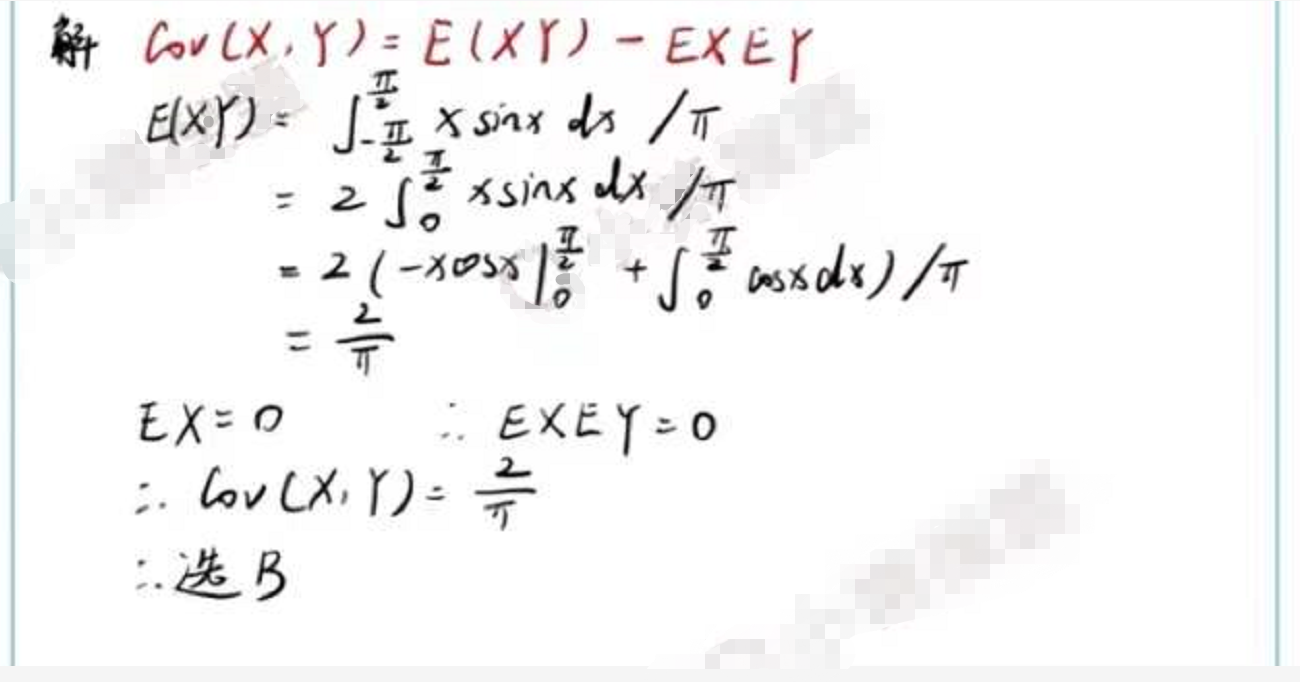 解 Cov(X,Y)=E(XY)-EXEY
E(XY)=∫_{-π/2}^{π/2} x sinx dx /π
=2∫_0^{π/2} x sinx dx /π
=2(-xcosx|_0^{π/2}+∫_0^{π/2} cosxdx)/π
=2/π
EX=0 ∴ EXEY=0
∴ Cov(X,Y)=2/π
∴选B